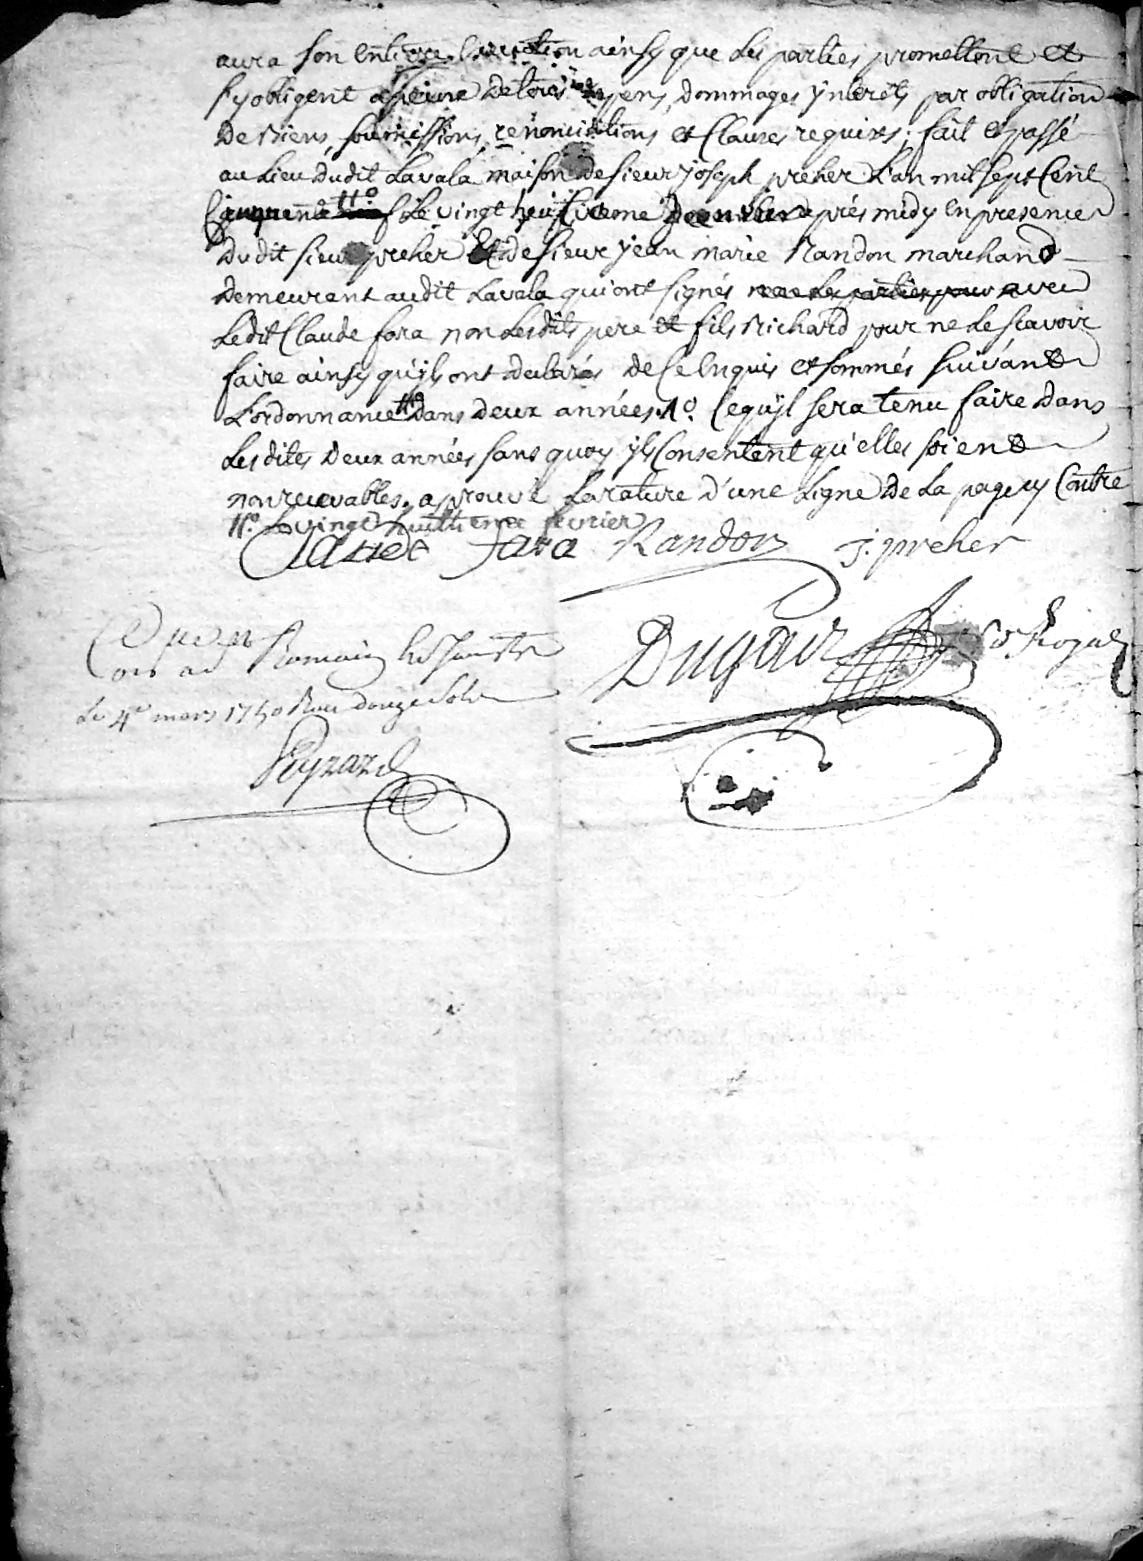 aura son entiere execution ainsy que les parties promettent et
s'yobligent apeine detous depens, dommages ynterêts par obligation
de Biens, soumissions, renonciations et Clauses requises; fait et passé
au Lieu dudit Lavala maison de sieur joseph preher L'an mil sept Cent
Cinquante Le vingt aprés midy en presence
dudit sieur preher et de sieur jean marie Randon marchand
demeurent audit Lavala qui ont signés avec
Ledit Claude fara non Lesdits pere et fils Richard pour ne Le scavoir
faire ainsy qu'ils ont declarés de ce Enquis et sommés suivant
L'ordonnance dans deux années 1º Ce qu'jl sera tenu faire dans
Les dites deux années sans quoy jls Consentent qu'elles soient
non recevables. aprouvé La rature d'une Ligne de La page cy Contre
Le vingt huittieme fevrier
Claude fara Randon J. preher
Dugair No. Royal
Le 4e mars 1750 Reçu douze sols
Peyrard